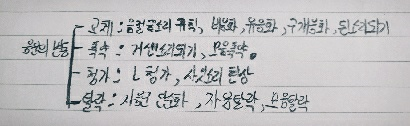 음운의 변동
교체 : 음절끝소리 규칙, 비음화, 유음화, 구개음화, 된소리되기
축약 : 거센소리되기, 모음축약.
첨가 : ㄴ첨가, 사잇소리 현상
탈락 : 자음군 단순화, 자음탈락, 모음탈락